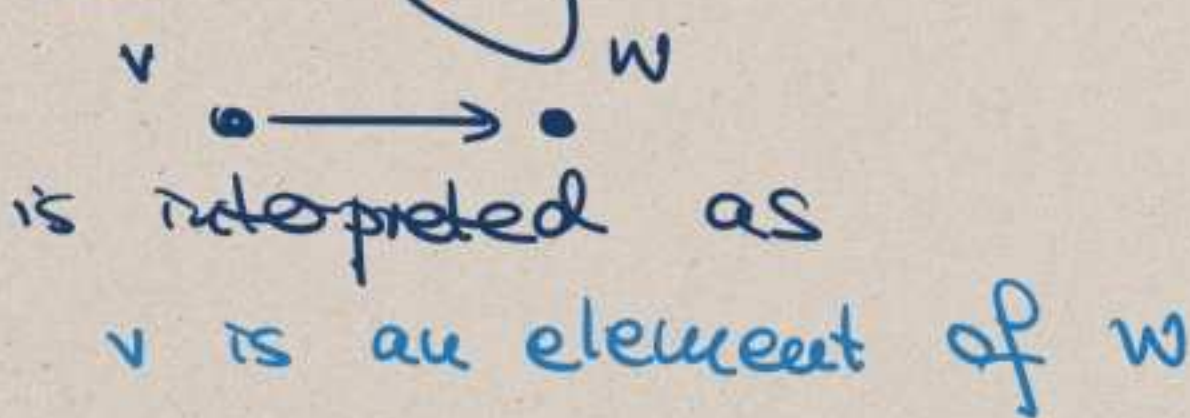 v w
is interpreted as
v is an element of w